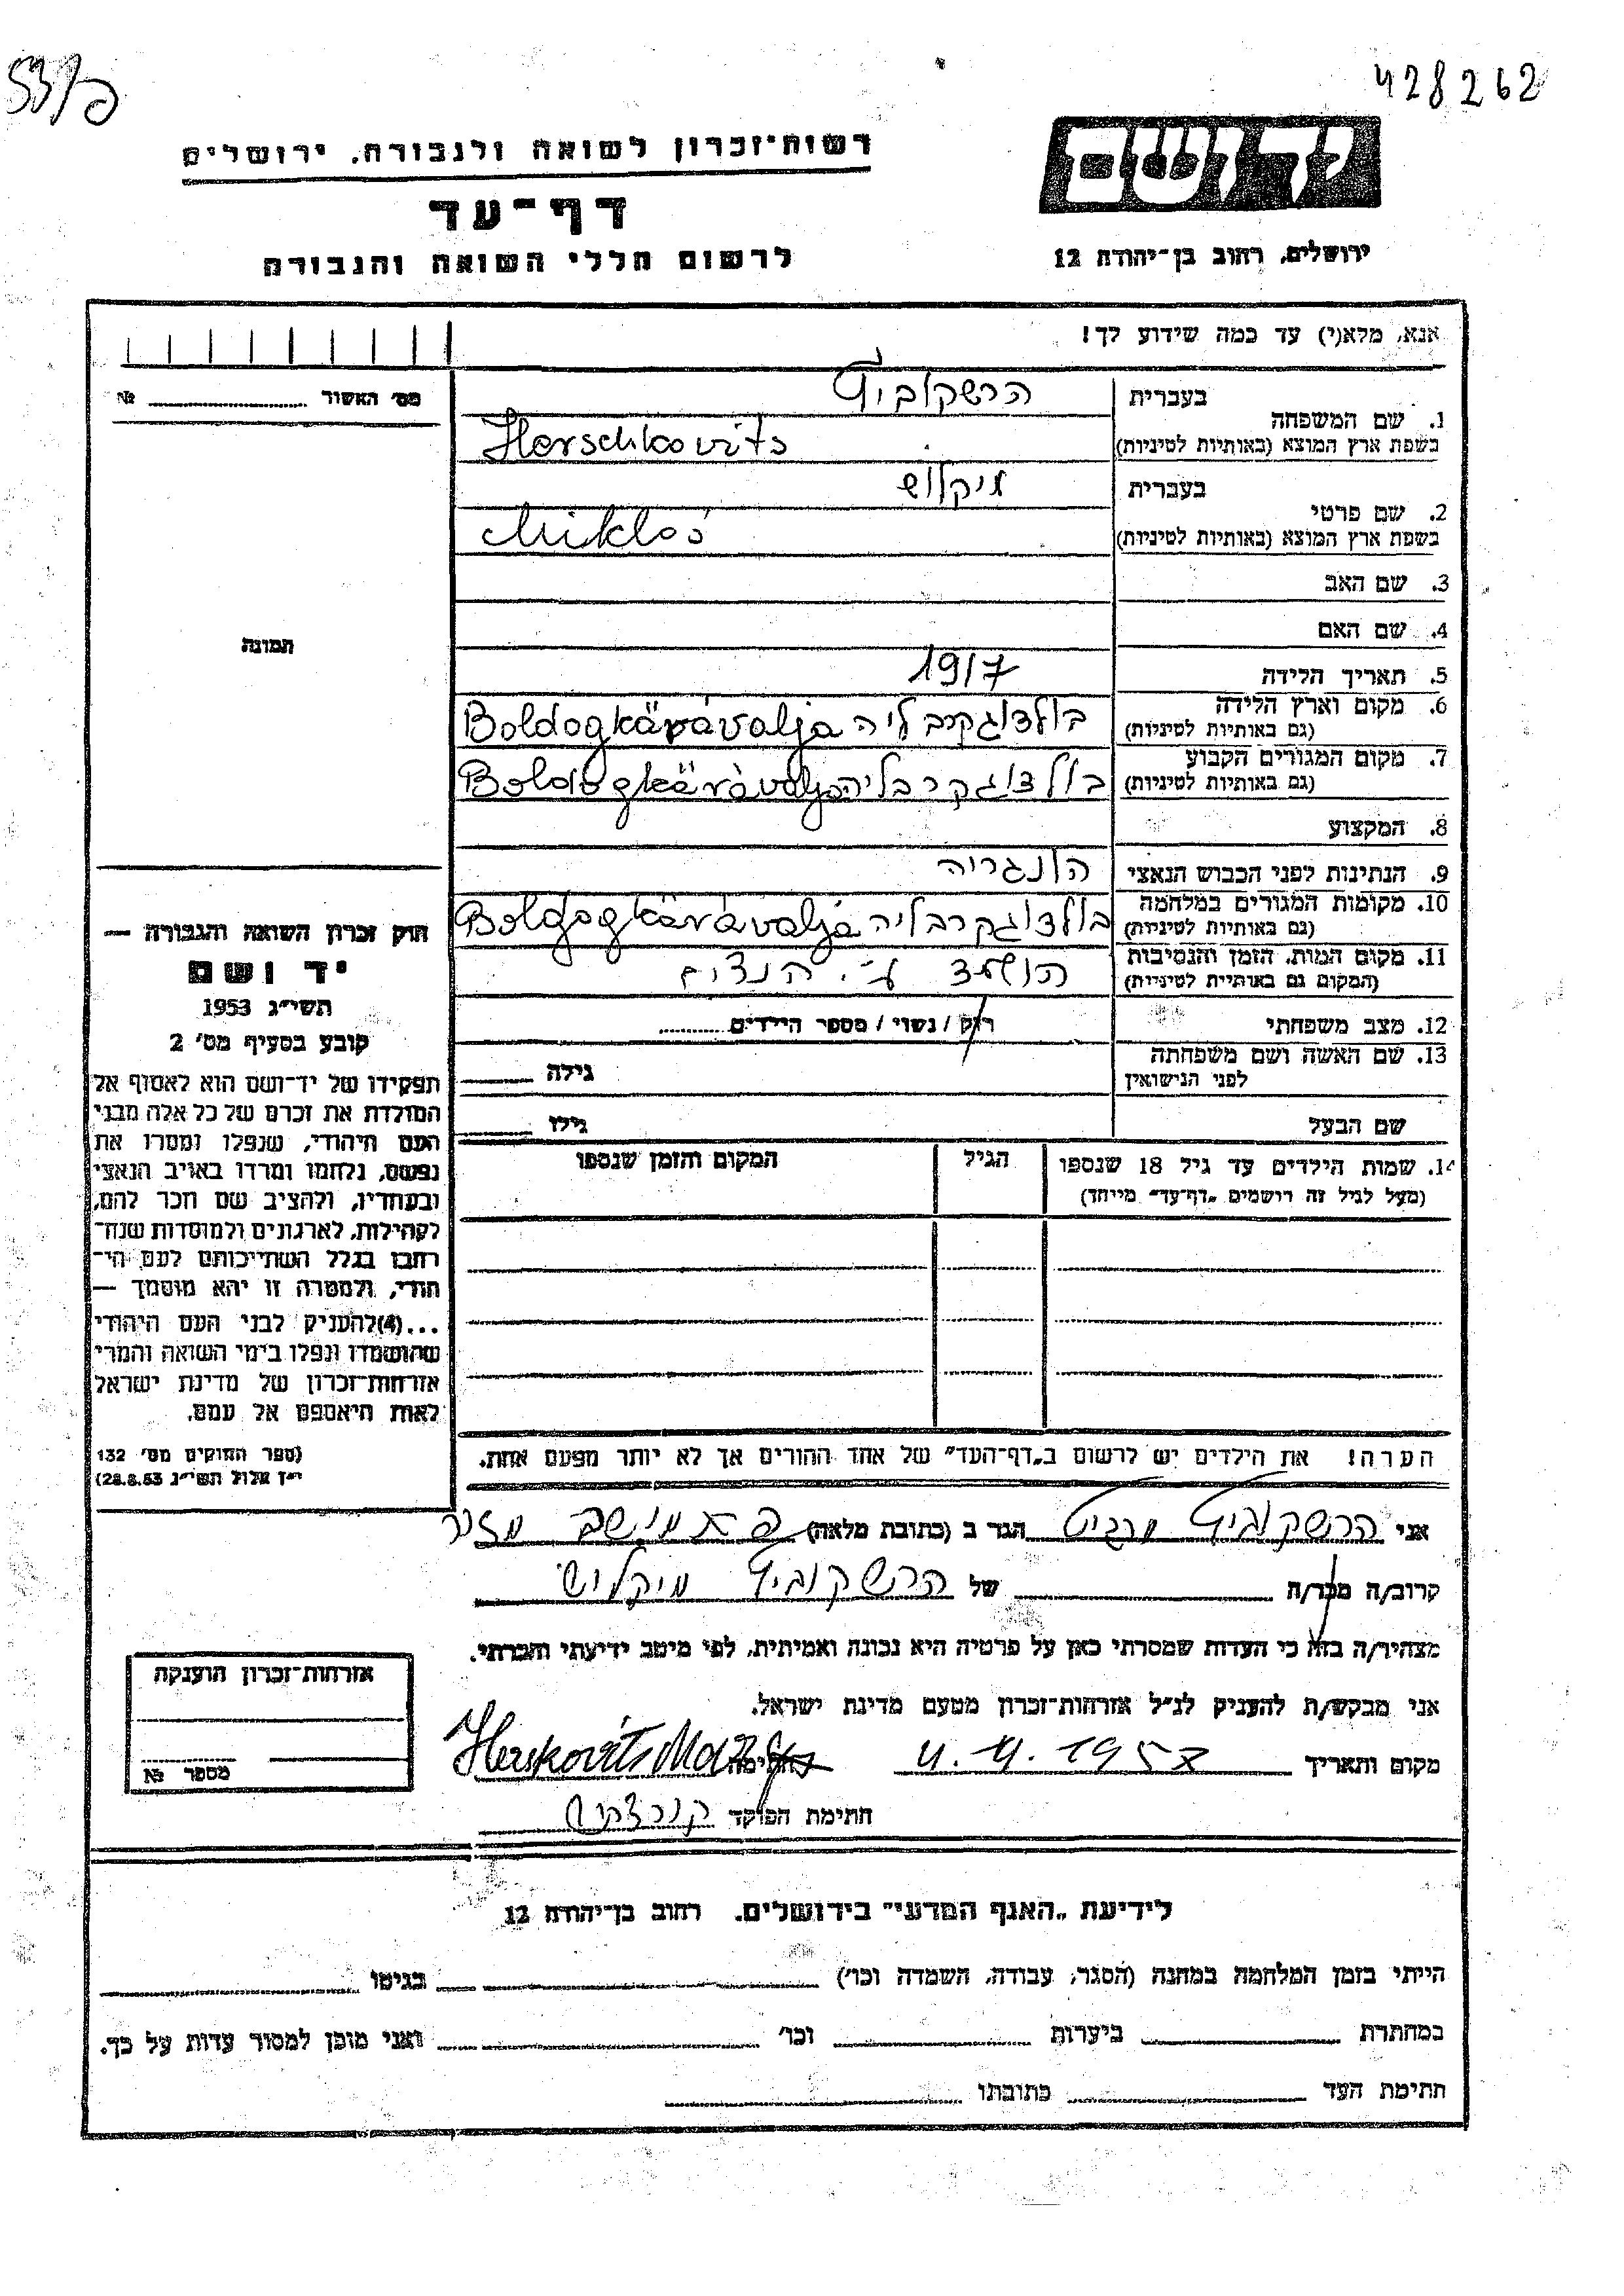 428262
רשות-זכרון לשואה ולגבורה, ירושלים
דף-עד
לרשום חללי השואה והגבורה
יד ושם
ירושלים, רחוב בן-יהודה 12
אנא, מלא(י) עד כמה שידוע לך!
מס' האשור №
1. שם המשפחה
בעברית הרשקוביץ
בשפת ארץ המוצא (באותיות לטיניות) Herschkovits
2. שם פרטי
בעברית מיקלוש
בשפת ארץ המוצא (באותיות לטיניות) Miklós
3. שם האב
4. שם האם
5. תאריך הלידה 1917
6. מקום וארץ הלידה
(גם באותיות לטיניות) בולדוגקרבליה Boldogkäráválja
7. מקום המגורים הקבוע
(גם באותיות לטיניות) בולדוגקרבליה Boldogkäráválja
8. המקצוע
9. הנתינות לפני הכבוש הנאצי הונגריה
10. מקומות המגורים במלחמה
(גם באותיות לטיניות) בולדוגקרבליה Boldogkäráválja
11. מקום המות, הזמן והנסיבות
(המקום גם באותיות לטיניות) הושמד ע"י הנצים
12. מצב משפחתי רוק / נשוי / מספר הילדים
13. שם האשה ושם משפחתה
לפני הנישואין גילה
שם הבעל גילו
14. שמות הילדים עד גיל 18 שנספו
(מעל לגיל זה רושמים „דף-עד" מייחד)
הגיל
המקום והזמן שנספו
הערה! את הילדים יש לרשום ב„דף-העד" של אחד ההורים אך לא יותר מפעם אחת.
תמונה
חוק זכרון השואה והגבורה —
יד ושם
תשי"ג 1953
קובע בסעיף מס' 2
תפקידו של יד-ושם הוא לאסוף אל
המולדת את זכרם של כל אלה מבני
העם היהודי, שנפלו ומסרו את
נפשם, נלחמו ומרדו באויב הנאצי
ובעוזריו, ולהציב שם וזכר להם,
לקהילות, לארגונים ולמוסדות שנח-
רבו בגלל השתייכותם לעם הי-
הודי, ולמטרה זו יהא מוסמך —
...(4) להעניק לבני העם היהודי
שהושמדו ונפלו בימי השואה והמרי
אזרחות-זכרון של מדינת ישראל
לאות היאספם אל עמם.
(ספר החוקים מס' 132
י"ז אלול תשי"ג 28.8.53)
אני הרשקוביץ מרגיט הגר ב (כתובת מלאה)
קרוב/ה מכר/ה של הרשקוביץ מיקלוש
מצהיר/ה בזה כי העדות שמסרתי כאן על פרטיה היא נכונה ואמיתית, לפי מיטב ידיעתי והכרתי.
אני מבקש/ת להעניק לנ"ל אזרחות-זכרון מטעם מדינת ישראל.
מקום ותאריך 4.4.1957 חתימה
חתימת הפוקד
אזרחות-זכרון הוענקה
מספר №
לידיעת „האגף המדעי" בירושלים, רחוב בן-יהודה 12
הייתי בזמן המלחמה במחנה (הסגר, עבודה, השמדה וכו') בגיטו
במחתרת ביערות וכו' ואני מוכן למסור עדות על כך.
חתימת העד כתובתו